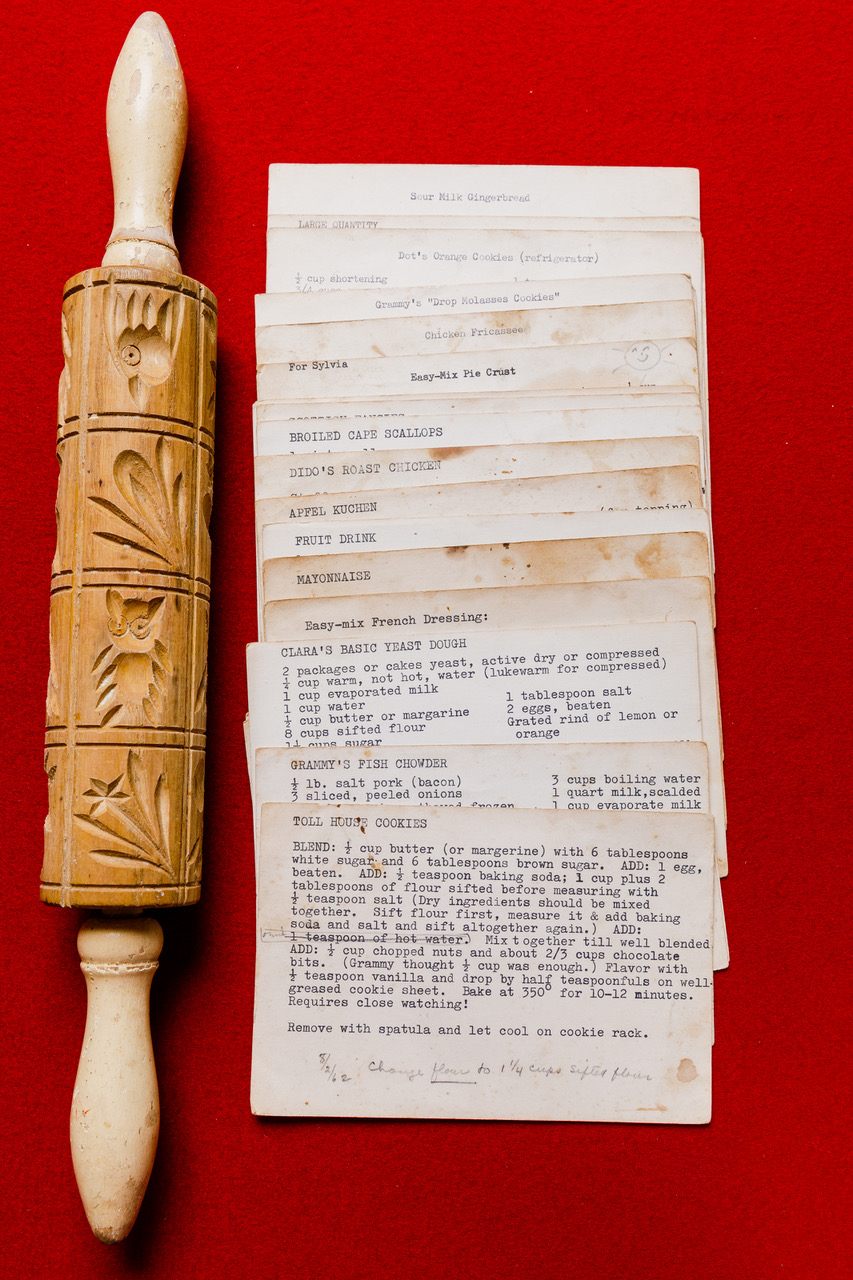 Sour Milk Gingerbread
LARGE QUANTITY
Dot's Orange Cookies (refrigerator)
½ cup shortening
Grammy's "Drop Molasses Cookies"
Chicken Fricassee
For Sylvia
Easy-Mix Pie Crust
BROILED CAPE SCALLOPS
DIDO'S ROAST CHICKEN
APFEL KUCHEN
FRUIT DRINK
MAYONNAISE
Easy-mix French Dressing:
CLARA'S BASIC YEAST DOUGH
2 packages or cakes yeast, active dry or compressed
¼ cup warm, not hot, water (lukewarm for compressed)
1 cup evaporated milk
1 cup water
½ cup butter or margarine
8 cups sifted flour
1½ cups sugar
1 tablespoon salt
2 eggs, beaten
Grated rind of lemon or
orange
GRAMMY'S FISH CHOWDER
½ lb. salt pork (bacon)
3 sliced, peeled onions
3 cups boiling water
1 quart milk,scalded
1 cup evaporate milk
TOLL HOUSE COOKIES
BLEND: ½ cup butter (or margerine) with 6 tablespoons
white sugar and 6 tablespoons brown sugar. ADD: 1 egg,
beaten. ADD: ½ teaspoon baking soda; 1 cup plus 2
tablespoons of flour sifted before measuring with
½ teaspoon salt (Dry ingredients should be mixed
together. Sift flour first, measure it & add baking
soda and salt and sift altogether again.) ADD:
1 teaspoon of hot water. Mix together till well blended.
ADD: ½ cup chopped nuts and about 2/3 cups chocolate
bits. (Grammy thought ½ cup was enough.) Flavor with
½ teaspoon vanilla and drop by half teaspoonfuls on well-
greased cookie sheet. Bake at 350° for 10-12 minutes.
Requires close watching!
Remove with spatula and let cool on cookie rack.
8/2/62 Change flour to 1 1/4 cups sifted flour